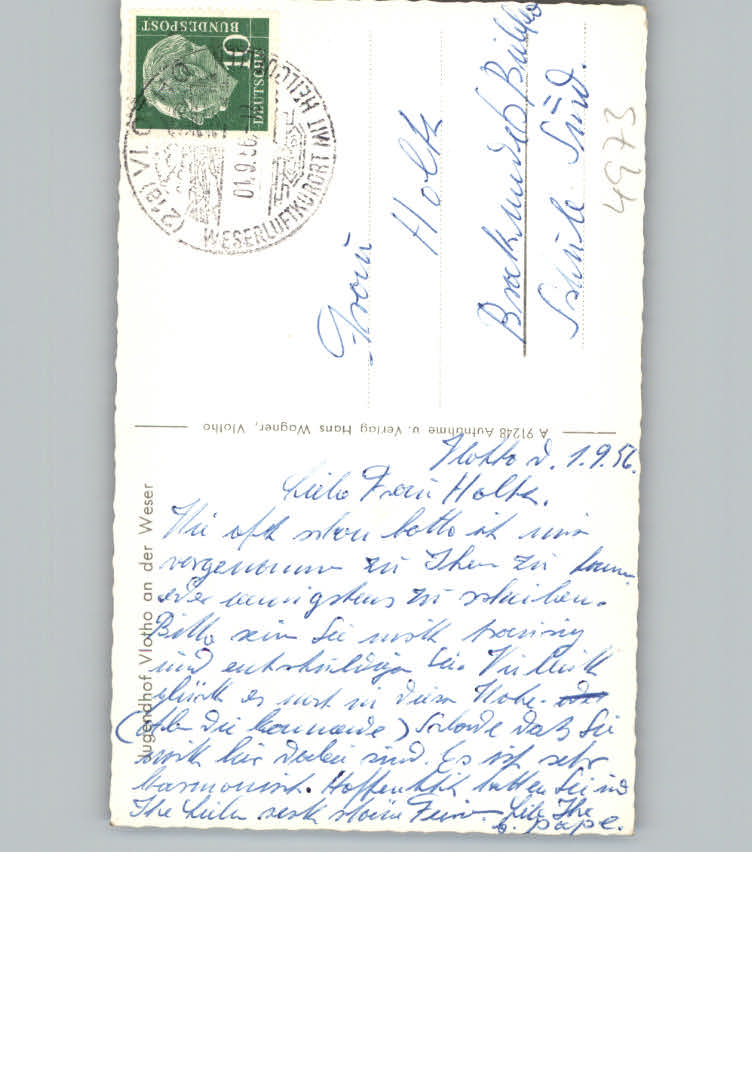 DEUTSCHE
BUNDESPOST
10
(21a) VLOTHO
01.9.56
WESERLUFTKURORT MIT HEILQU
Frau
Holk
Schule Süd.
4973
A 91248 Aufnahme u. Verlag Hans Wagner, Vlotho
Jugendhof Vlotho an der Weser
Vlotho d. 1.9.56.
Liebe Frau Holk.
Wie oft schon hatte ich mir
vorgenommen zu Ihnen zu komm
oder wenigstens zu schreiben.
Bitte sein Sie nicht traurig
und entschuldigen Sie. Vielleicht
glückt es noch in dieser Woche. oder
(Aber die kommende) Schade daß Sie
nicht hier dabei sind. Es ist sehr
harmonisch. Hoffentlich hatten Sie und
Ihre Lieben recht schöne Ferien. Ihre
Pape.